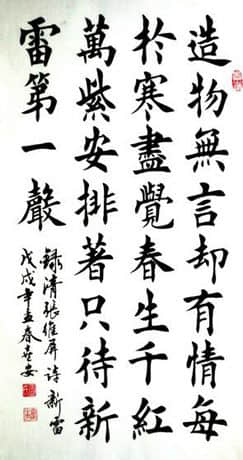 造物無言却有情每
於寒盡覺春生千紅
萬紫安排著只待新
雷第一聲
録清張維屏詩新雷
戊戌年孟春